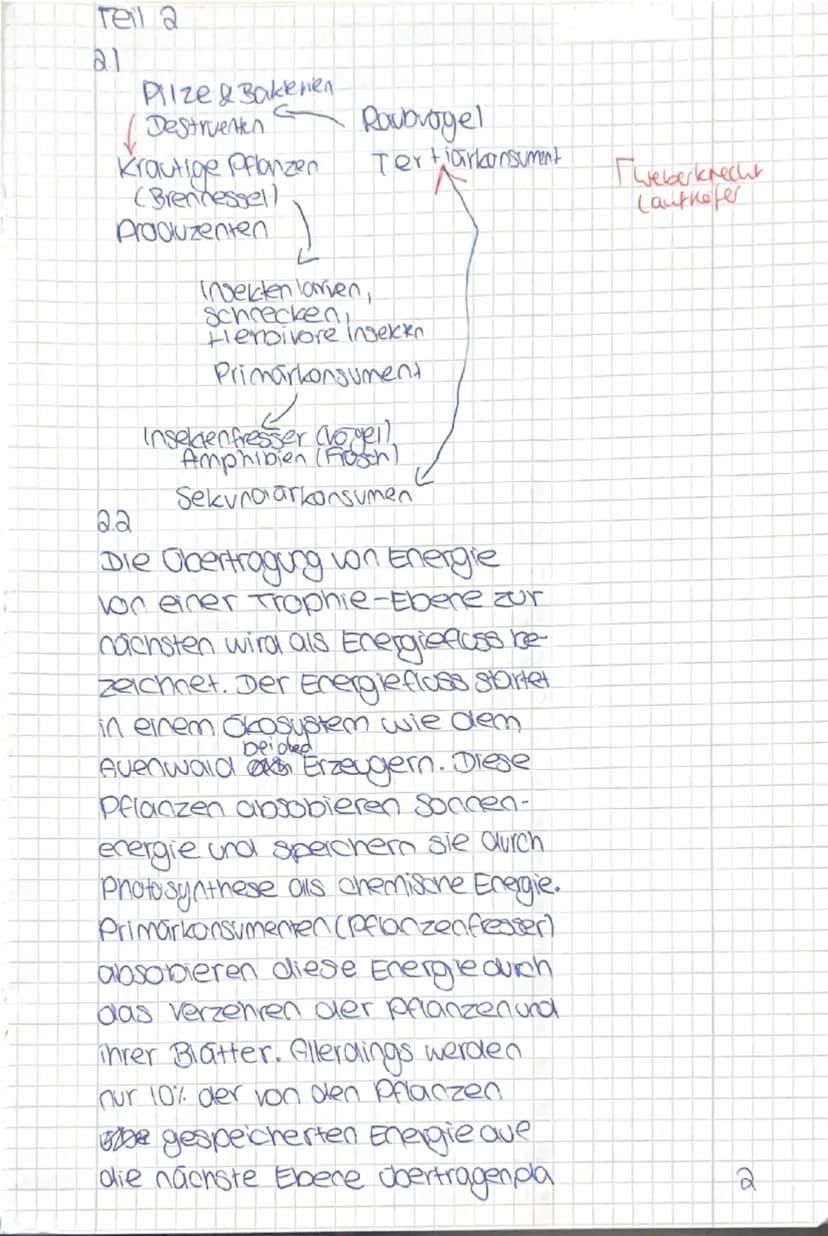 Teil 2
2.1
Pilze & Bakterien
Destruenten
Raubvögel
Krautige Pflanzen
Tertiärkonsument
(Brennessel)
Produzenten
Γ Weberknecht
Laufkäfer
Insektenlarven,
schnecken,
Herbivore Insekten
Primärkonsument
Insektenfresser (Vögel)
Amphibien (Frosch)
Sekundärkonsumen
2.2
Die Übertragung von Energie
von einer Trophie-Ebene zur
nächsten wird als Energiefluss be-
zeichnet. Der Energiefluss startet
in einem Ökosystem wie dem
Auenwald bei den Erzeugern. Diese
Pflanzen absobieren Sonnen-
energie und speichern sie durch
Photosynthese als chemische Energie.
Primärkonsumenten (Pflanzenfresser)
absobieren diese Energie durch
das Verzehren der Pflanzen und
ihrer Blätter. Allerdings werden
nur 10% der von den Pflanzen
gespeicherten Energie aue
die nächste Ebene übertragen, da
2